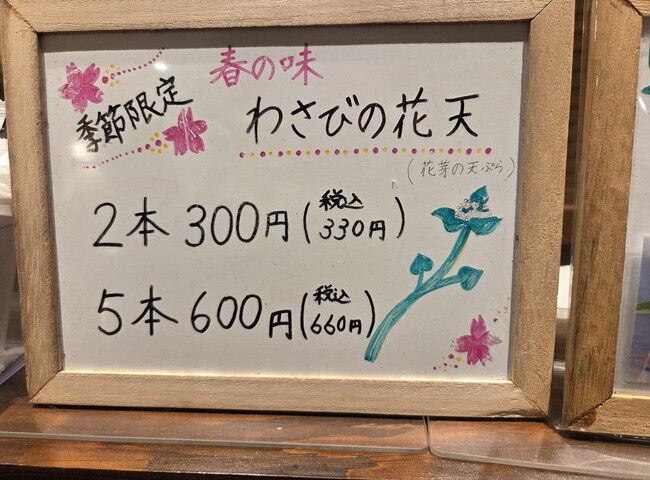 春の味
季節限定
わさびの花天
(花芽の天ぷら)
2本 300円(税込330円)
5本 600円(税込660円)